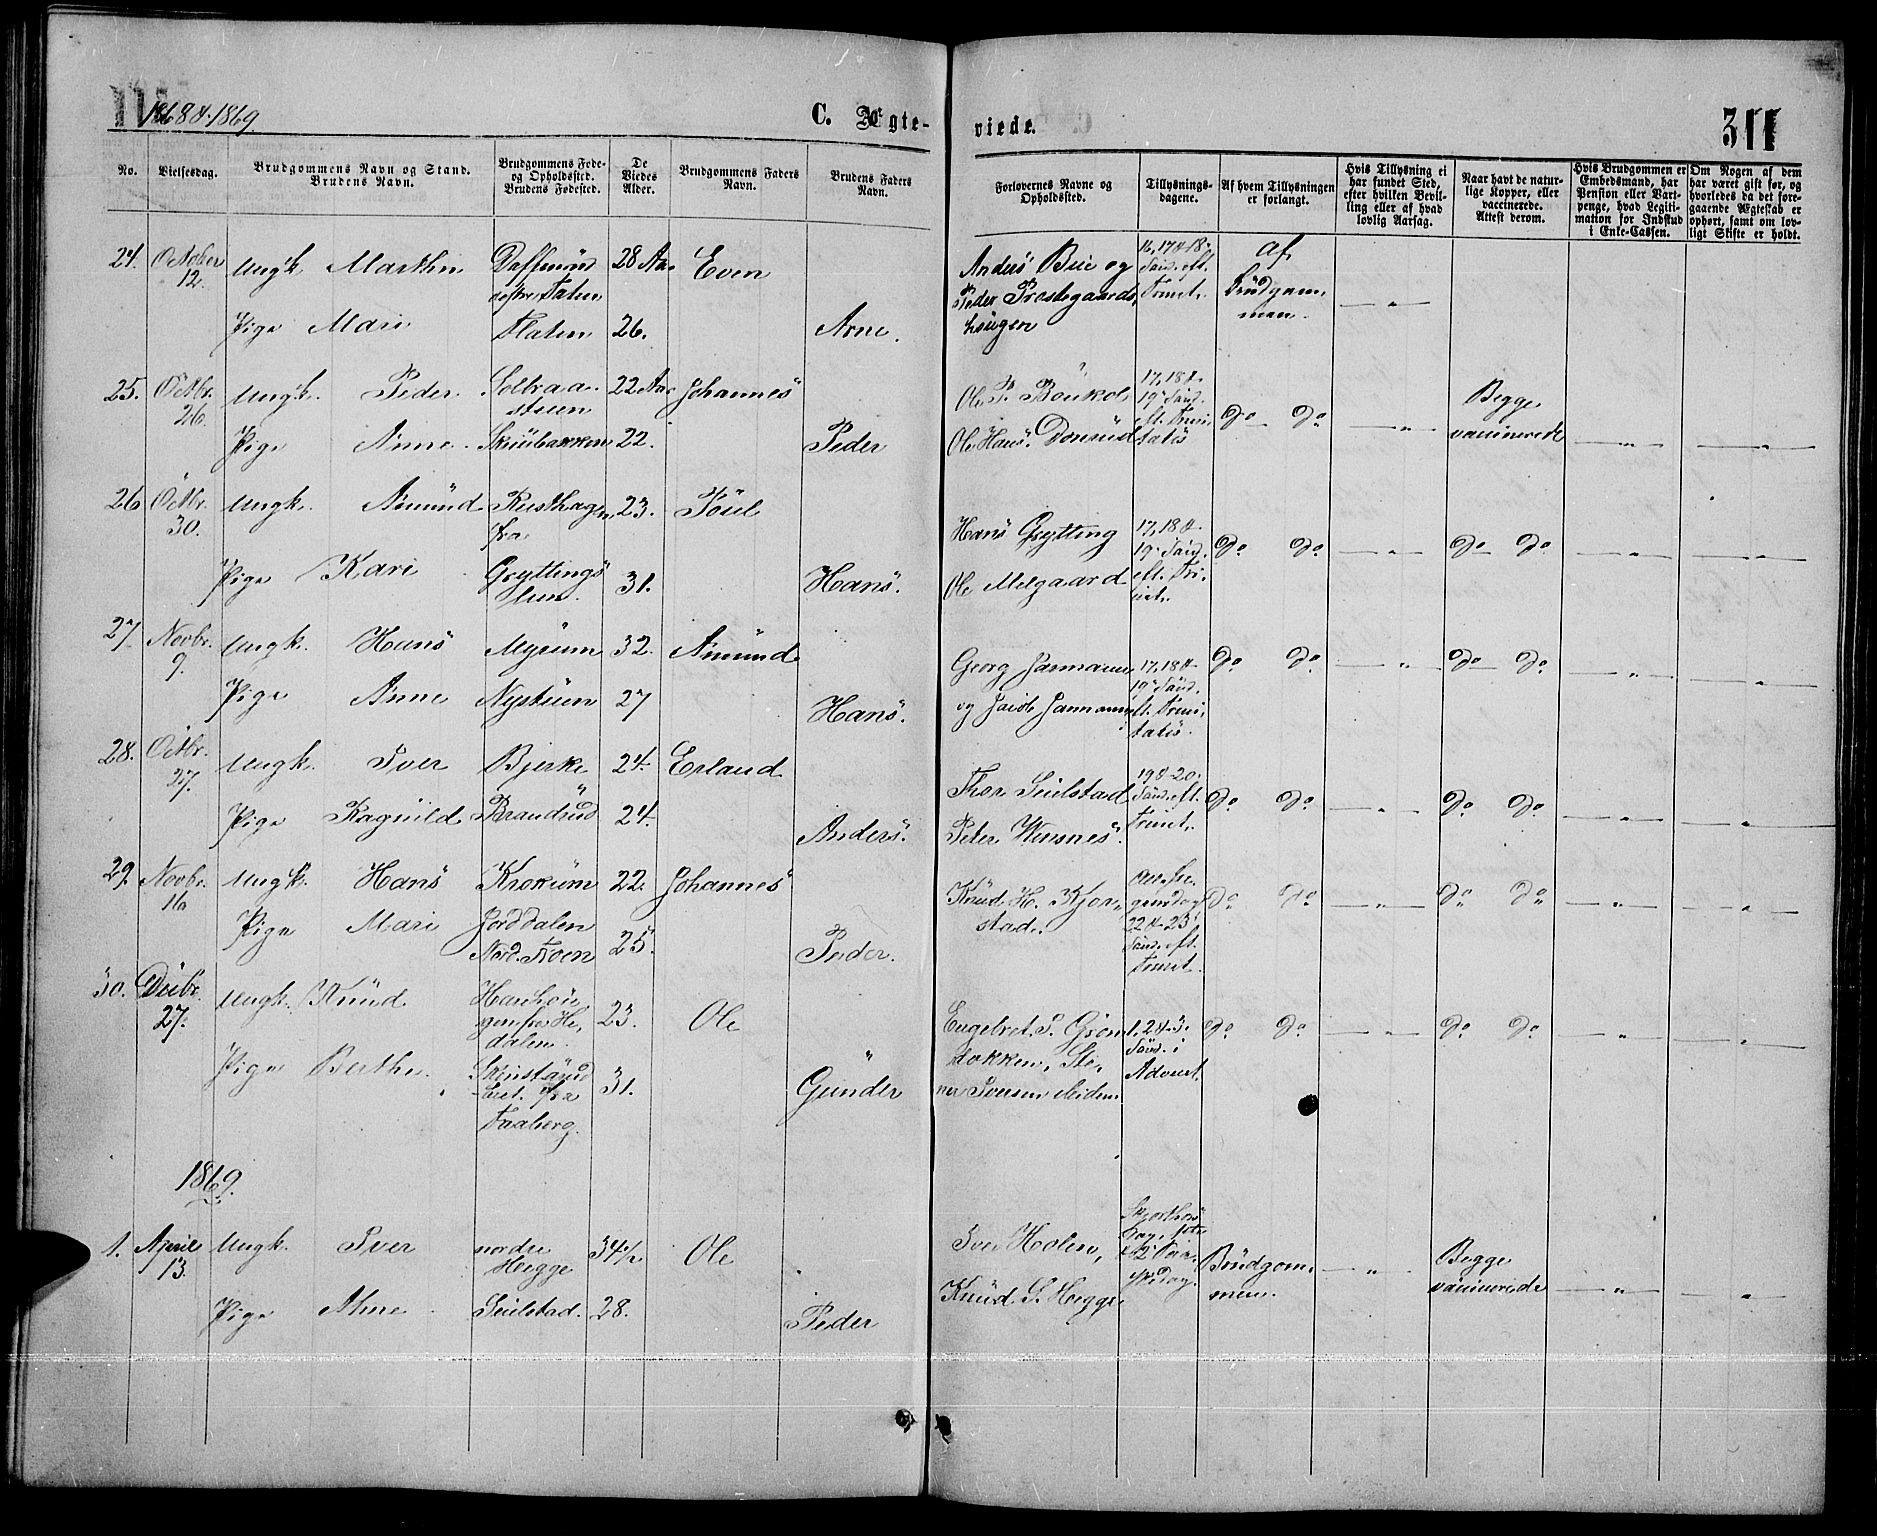 1868 & 1869.
C. Ægte-
viede.
311
No.
Vielsesdag.
Brudgommens Navn og Stand.
Brudens Navn.
Brudgommens Føde-
og Opholdssted.
Brudens Fødested.
De
Viedes
Alder.
Brudgommens Faders
Navn.
Brudens Faders
Navn.
Forlovernes Navne og
Opholdssted.
Tillysnings-
dagene.
Af hvem Tillysningen
er forlangt.
Hvis Tillysning ei
har fundet Sted,
efter hvilken Bevil-
ling eller af hvad
lovlig Aarsag.
Naar havt de natur-
lige Kopper, eller
vaccinerede.
Attest derom.
Hvis Brudgommen er
Embedsmand, har
Pension eller Vart-
penge, hvad Legiti-
mation for Indskud
i Enke-Cassen.
Om Nogen af dem
har været gift før, og
hvorledes da det fore-
gaaende Ægteskab er
ophørt, samt om lov-
ligt Skifte er holdt.
24. October Ungk. Marthin 28 Aar Even
12.
Pige Mari Flaten 26. Arne.
Anders Bue og
Peder Præstegaards
haugen
16, 17 & 18
Sønd. eft.
Trinit.
Af
brudgom-
men. — " —
25. Octbr. Ungk. Peder Solbraa- 22 Aar Johannes
26. stuen
Pige Anne. Skuibakken 22. Peder
Ole P.
Ole Hans.
17, 18 &
19 Sønd.
eft. Trini
tatis
do do — " — Begge
vaccinerede — " — — " —
26 Octbr. Ungk. Amund Rusthagen 23. Poul
30. fra
Pige Kari Gryttings 31. Hans.
Hans Grytting
Ole Melgaard
17, 18 &
19 Sønd.
eft. Tri-
nit.
do do — " — do do — " — — " —
27 Novbr. Ungk. Hans Myrum 32. Amund
9.
Pige Anne Nystuen 27 Hans.
Georg Jarmann
og Jacob Jarmann
17, 18 &
19 Sønd.
eft. Trini-
tatis.
do do — " — do do — " — — " —
28. Octbr. Ungk. Iver Bjerke 24. Erland
27.
Pige Ragnild Brandrud 24. Anders.
Thor Seielstad
Peter Winsnes.
19 & 20
Sønd. eft.
Trinit.
do do — " — do do — " — — " —
29. Novbr. Ungk. Hans Krokum 22. Johannes
16
Pige Mari Jorddalen 25. Peder.
Nord.
Knud H. Kjør-
stad.
22 & 23
Sønd. eft.
Trinit.
do do — " — do do — " — — " —
30. Decbr. Ungk. Knud 23. Ole
27. dalen.
Pige Berthe. 31. Gunder
fra
Faaberg.
Engebret S.
Iversen
1, 2 & 3.
Sønd. i
Advent.
do do — " — do do — " — — " —
1869.
1. April Ungk. Iver nordre 34½ Ole
13. Hegge
Pige Anne Seielstad. 28. Peder
Iver Holen,
Knud S. Hegge
Brudgom-
men. — " — Begge
vaccinerede — " — — " —